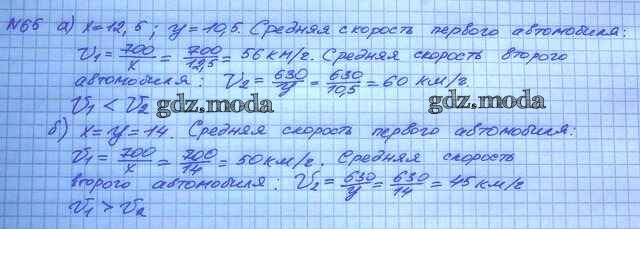 №65 а) x=12,5; y=10,5. Средняя скорость первого автомобиля:
V₁ = 700/x = 700/12,5 = 56 км/г. Средняя скорость второго
автомобиля: V₂ = 630/y = 630/10,5 = 60 км/г.
V₁ < V₂ gdz.moda gdz.moda
б) x=y=14. Средняя скорость первого автомобиля:
V₁ = 700/x = 700/14 = 50 км/г. Средняя скорость
второго автомобиля: V₂ = 630/y = 630/14 = 45 км/г
V₁ > V₂